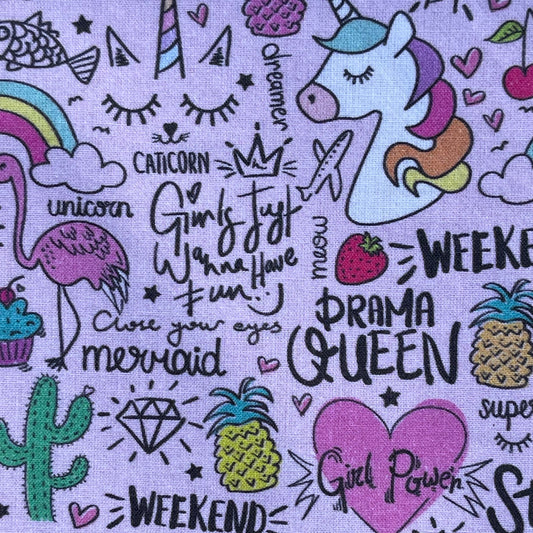 dreamer
CATICORN
unicorn
Girls Just
Wanna Have
Fun
meow
WEEKE
DRAMA
QUEEN
Close your eyes
mermaid
super
Girl Power
WEEKEND
St